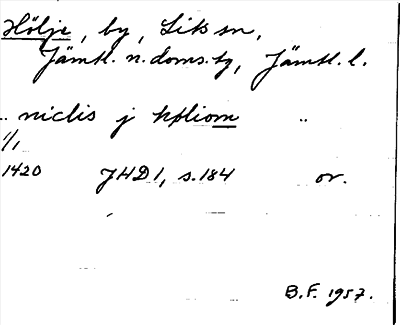 Hölje, by, Liks sn,
Jämtl. n. doms.tg, Jämtl. l.
.. niclis j høliom ..
1/1
1420 JHD 1, s. 184 or.
B.F. 1957.